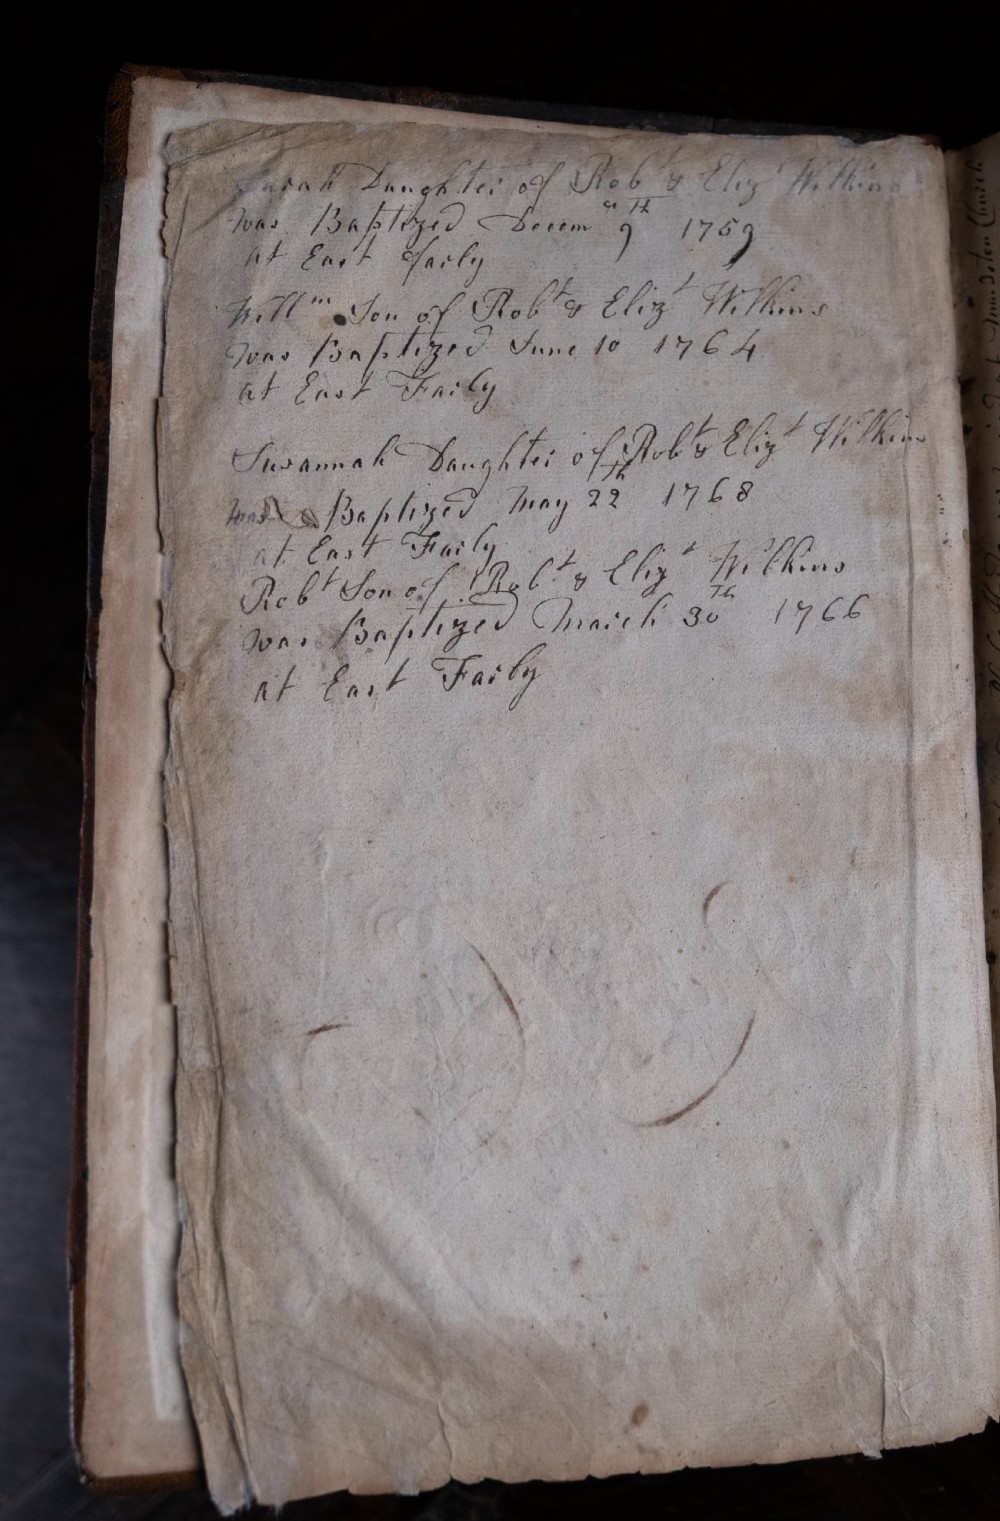 Sarah Daughter of Rob^t & Eliz^t Wilkins
was Baptized Decem^r 9^Th 1759
at East Faily
Will^m Son of Rob^t & Eliz^t Wilkins
was Baptized June 10 1764
at East Faily
Susannah Daughter of Rob^t & Eliz^t Wilkins
was Baptized May 22^Th 1768
at East Faily
Rob^t Son of Rob^t & Eliz^t Wilkins
was Baptized March 30^Th 1766
at East Faily